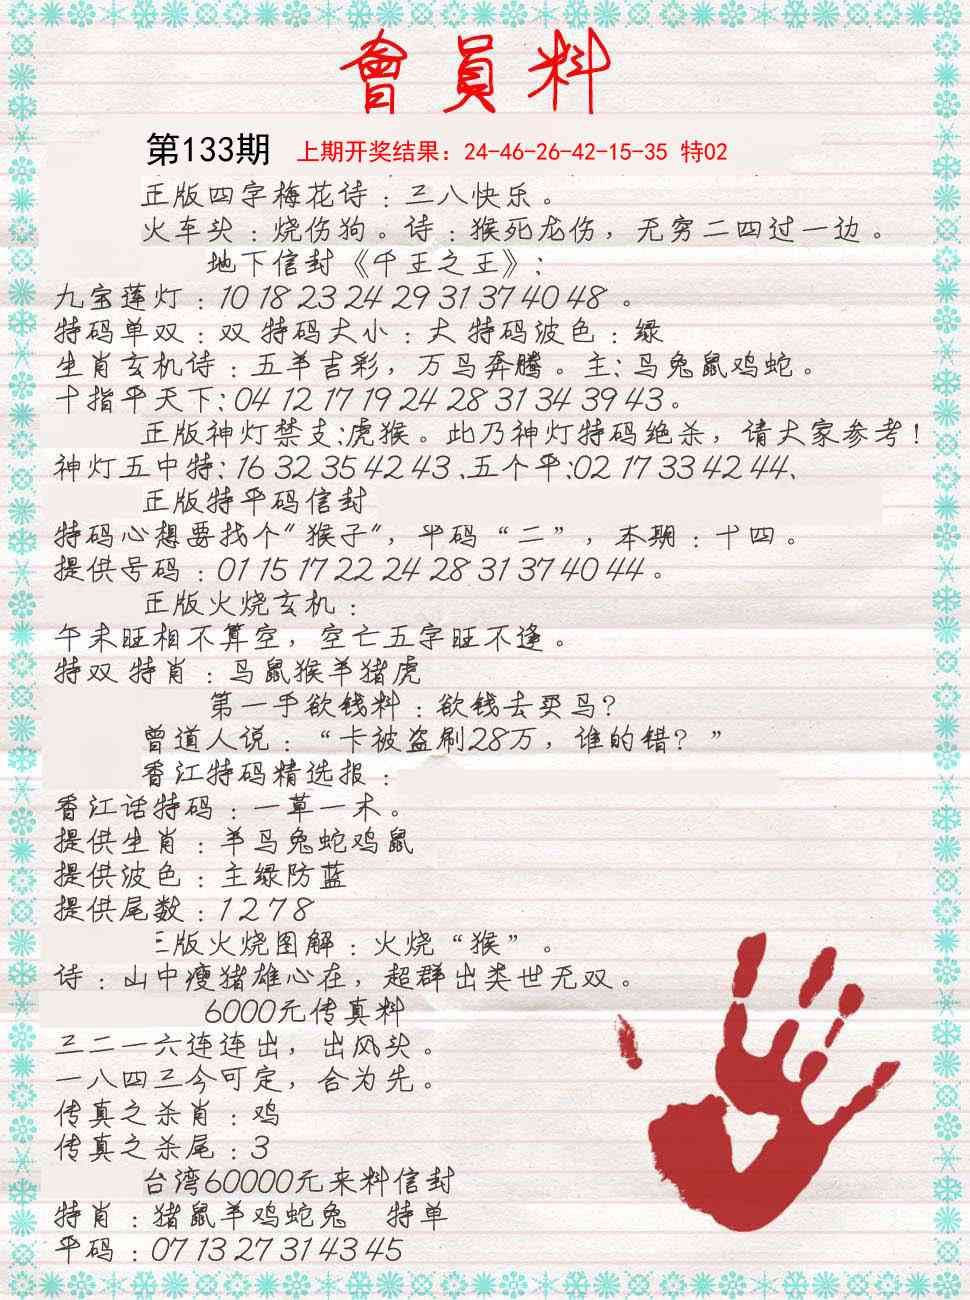 會員料
第133期 上期开奖结果：24-46-26-42-15-35 特02
正版四字梅花诗：三八快乐。
火车头：烧伤狗。诗：猴死龙伤，无穷二四过一边。
地下信封《千王之王》：
九宝莲灯：10 18 23 24 29 31 37 40 48 。
特码单双：双 特码大小：大 特码波色：绿
生肖玄机诗：五羊吉彩，万马奔腾。主：马兔鼠鸡蛇。
十指平天下：04 12 17 19 24 28 31 34 39 43。
正版神灯禁支：虎猴。此乃神灯特码绝杀，请大家参考！
神灯五中特：16 32 35 42 43 、五个平：02 17 33 42 44、
正版特平码信封
特码心想要找个"猴子"，平码“二”，本期：十四。
提供号码：01 15 17 22 24 28 31 37 40 44 。
正版火烧玄机：
午未旺相不算空，空亡五字旺不逢。
特双 特肖：马鼠猴羊猪虎
第一手欲钱料：欲钱去买马？
曾道人说：“卡被盗刷28万，谁的错？”
香江特码精选报：
香江话特码：一草一木。
提供生肖：羊马兔蛇鸡鼠
提供波色：主绿防蓝
提供尾数：1 2 7 8
版火烧图解：火烧“猴”。
诗：山中瘦猪雄心在，超群出类世无双。
6000元传真料
三二一六连连出，出风头。
一八四三今可定，合为先。
传真之杀肖：鸡
传真之杀尾：3
台湾60000元来料信封
特肖：猪鼠羊鸡蛇兔 特单
平码：07 13 27 31 43 45